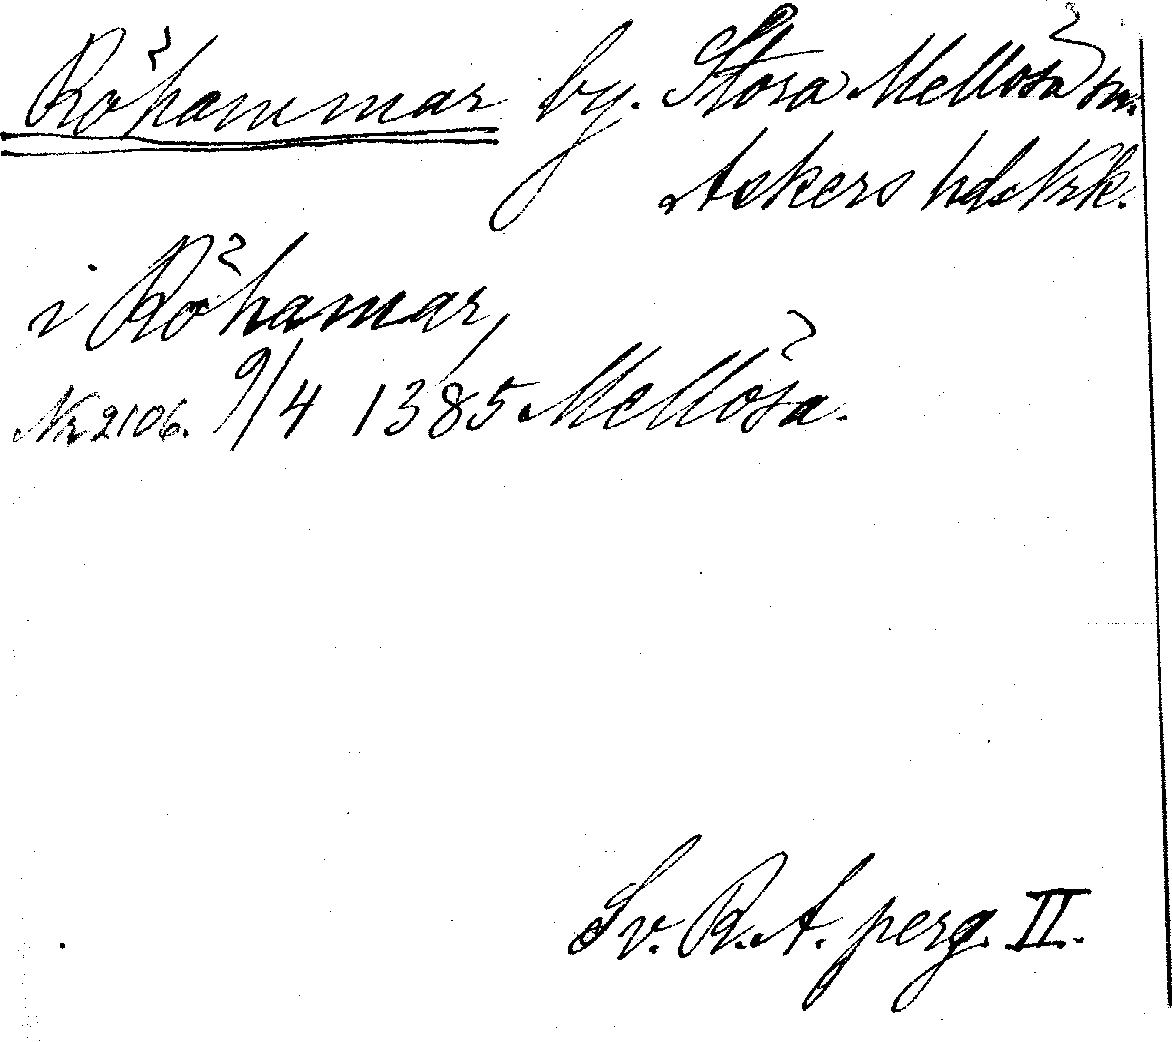 Röhammar by. Stora Mellösa sn.
Askers hd. Nrk.
i Röhamar,
Nr 2106. 9/4 1385 Mellösa.
Sv. R. A. perg. II.